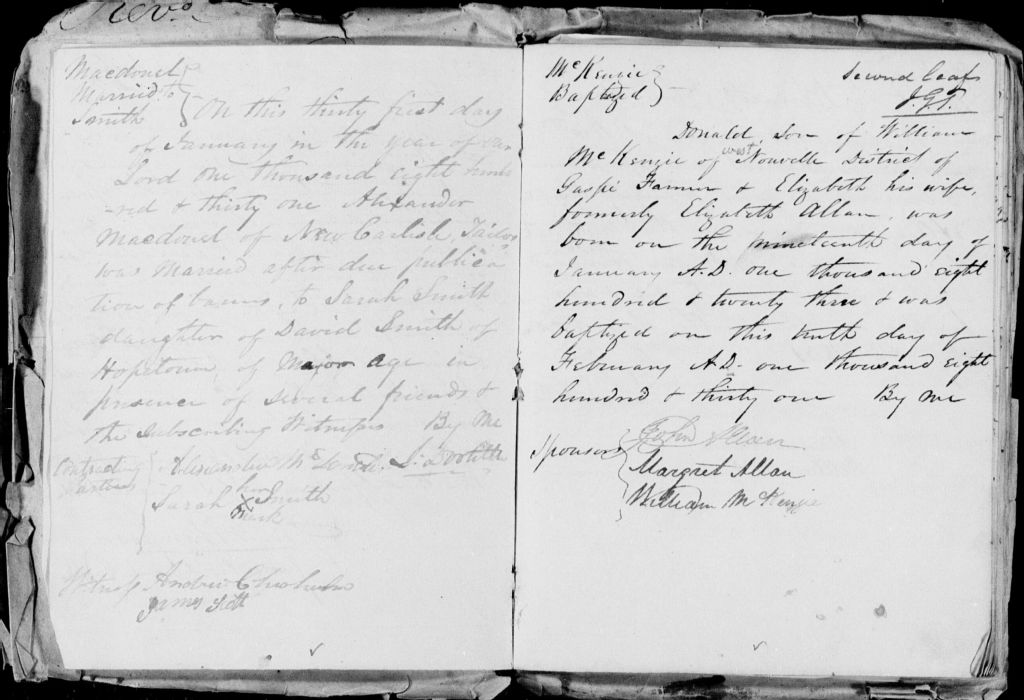 Revd
Macdonel
Married to
Smith
On this thirty first day
of January in the year of our
Lord One thousand Eight hund
-red & thirty one Alexander
Macdonel of New Carlisle, Tailor
was Married after due publica
tion of banns, to Sarah Smith
daughter of David Smith of
Hopetown, of Major Age in
presence of several friends &
the subscribing Witness By Me
Contracting
Parties
Alexander
Sarah her X mark Smith
Witness Andrew Chisholm
James
McKenzie
Baptized
Second leaf
J.G.T.
Donald, Son of William
McKenzie of west Nouvelle District of
Gaspé Farmer & Elizabeth his wife,
formerly Elizabeth Allan, was
born on the nineteenth day of
January A.D. one thousand eight
hundred & twenty three & was
baptized on this tenth day of
February A.D. one thousand eight
hundred & thirty one By me
Sponsors
John Allan
Margret Allan
William McKenzie